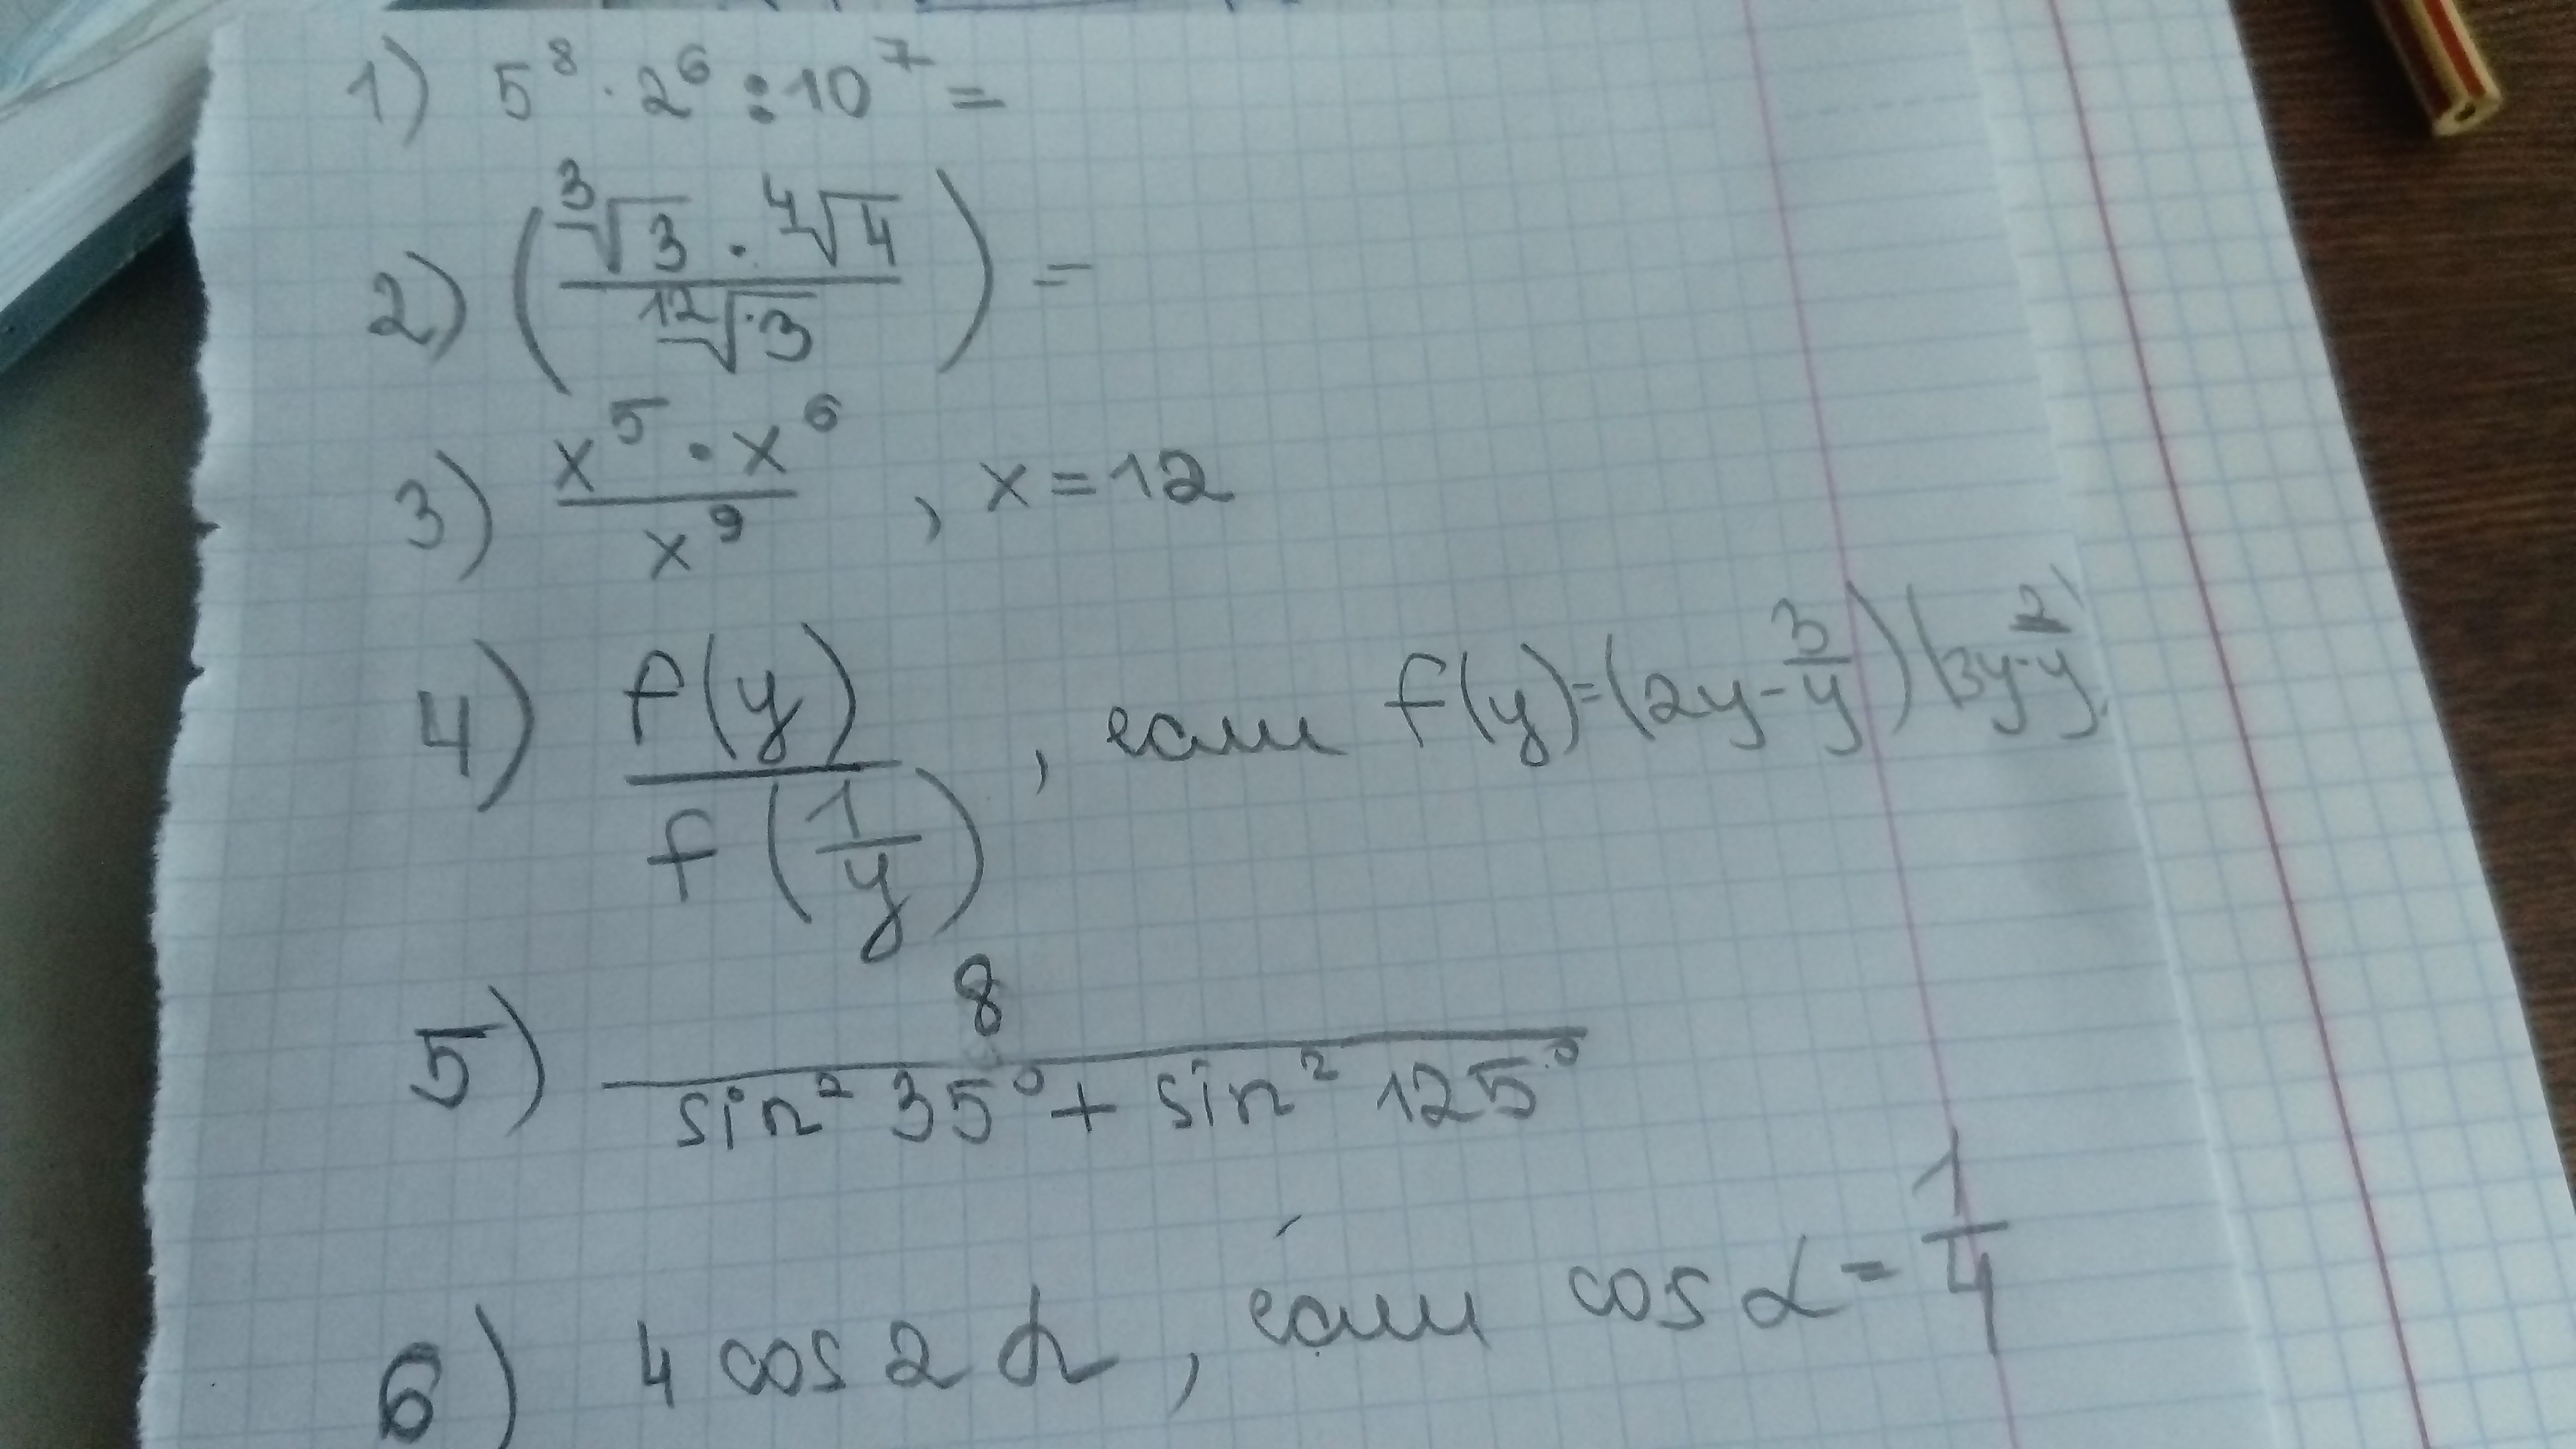 1) 5⁸ · 2⁶ : 10⁷ =
2) (∛3 · ∜4 / ¹²√3) =
3) x⁵ · x⁶ / x⁹ , x = 12
4) f(y) / f(1/y) , если f(y) = (2y - 3/y)(3y - 2/y)
5) 8 / sin² 35° + sin² 125°
6) 4 cos 2α , если cos α = 1/4